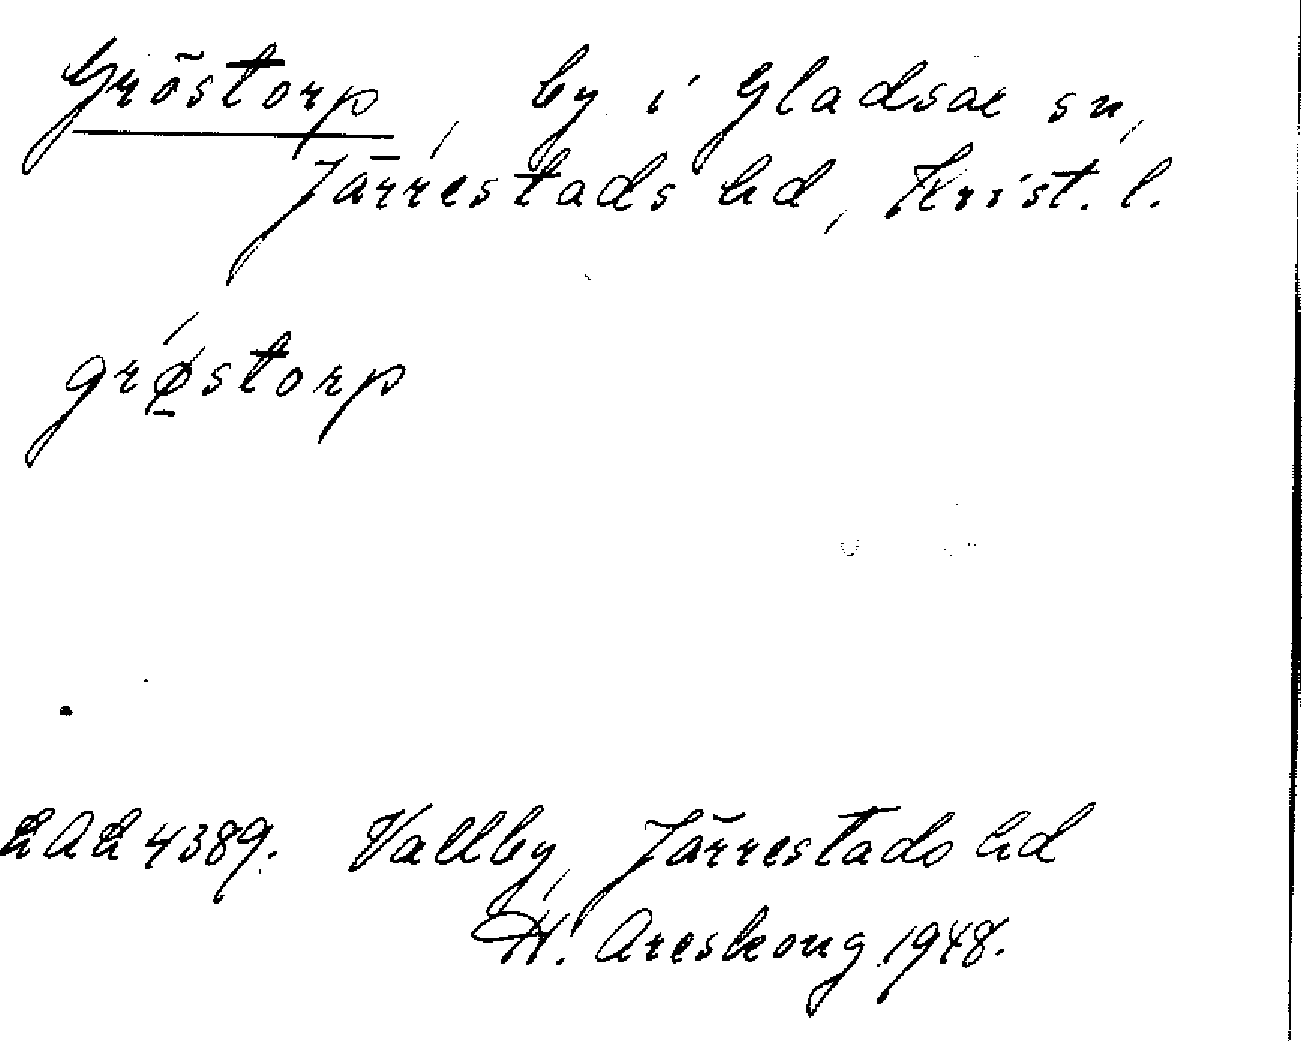 Gröstorp, by i Gladsax sn,
Järrestads hd, Krist. l.
grǿ̠storp
LAL 4389. Vallby, Järrestads hd
H. Areskoug 1948.